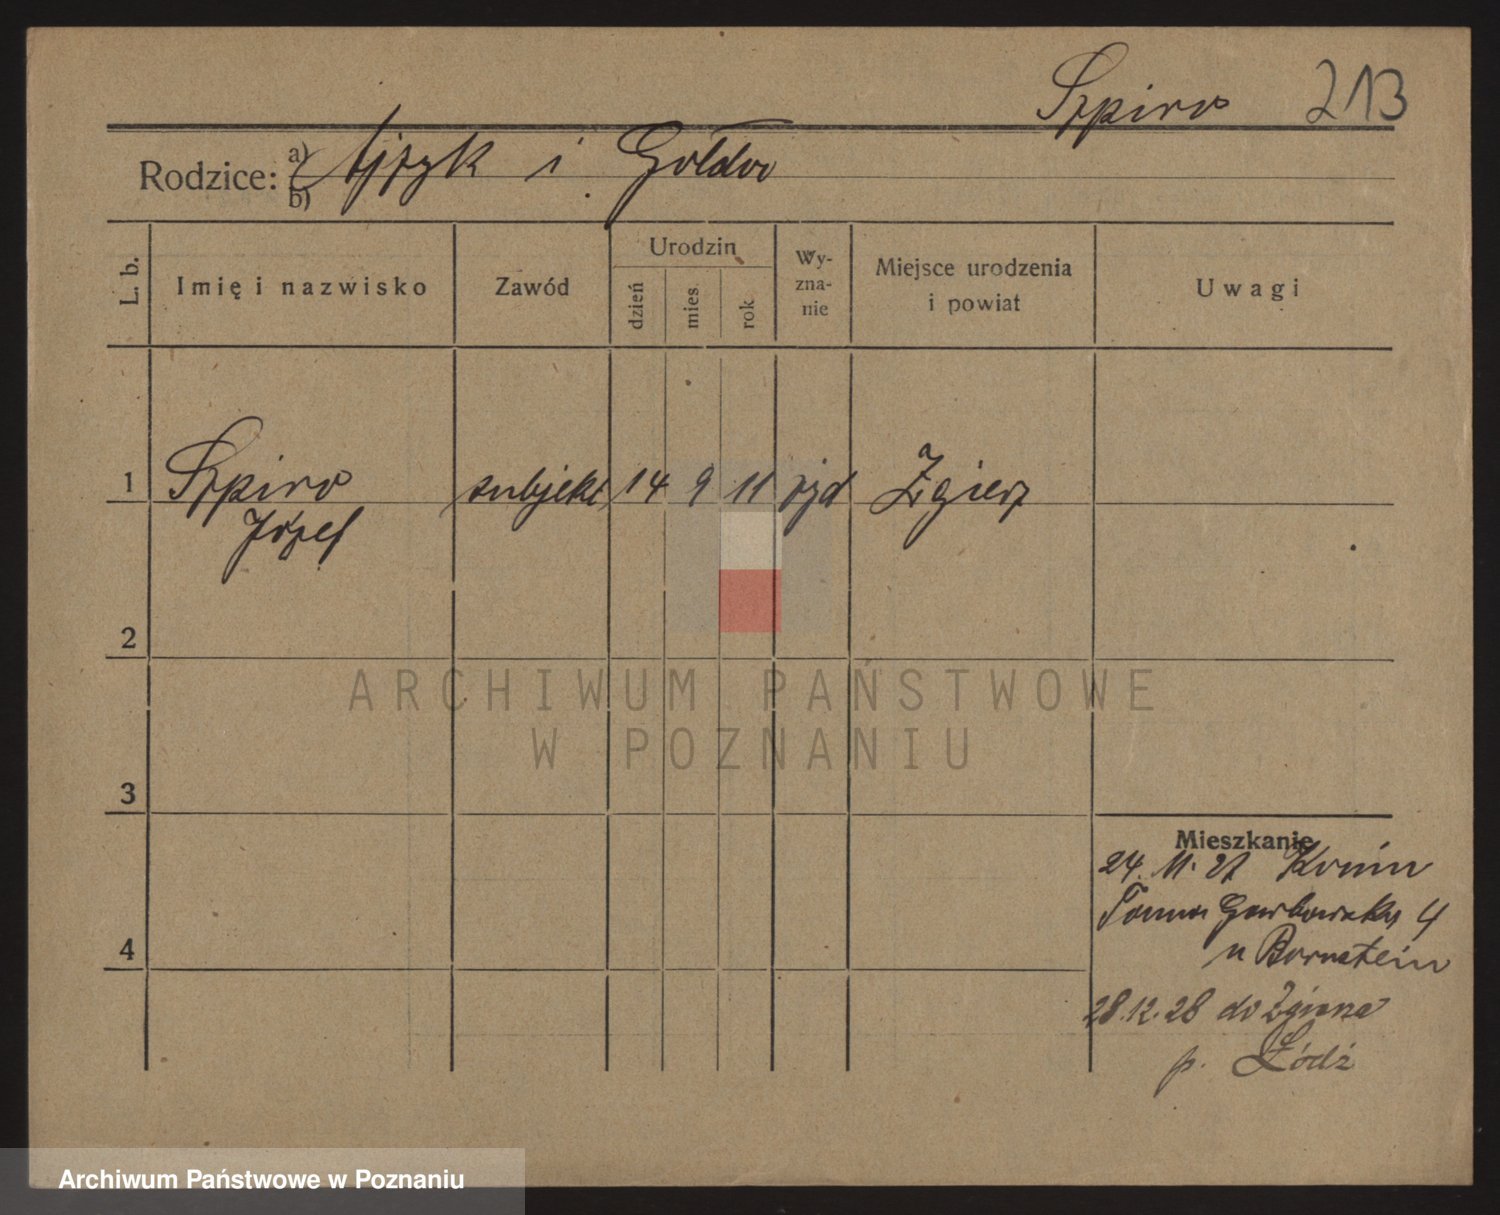 Szpiro 213
Rodzice: a) Ajzyk i Gołda
b)
L. b. Imię i nazwisko Zawód Urodzin dzień mies. rok Wy-zna-nie Miejsce urodzenia i powiat Uwagi
1 Szpiro subjekt 14 9 11 żyd Zgierz
Józef
2
ARCHIWUM PAŃSTWOWE
W POZNANIU
3
Mieszkanie
24. 11. 27 Konin
Garbowska 4
u Bornstein
4
28.12.28 do Zgierza
p. Łódź
Archiwum Państwowe w Poznaniu